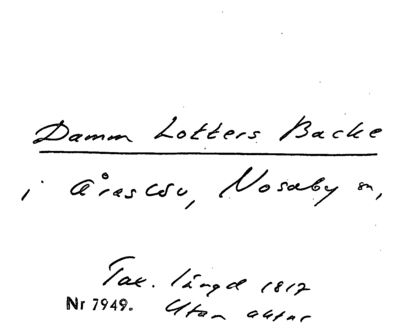 Damm Lotters Backe
i Åraslöv, Nosaby sn,
Tax. längd 1817
Nr 7949. Utan avtar